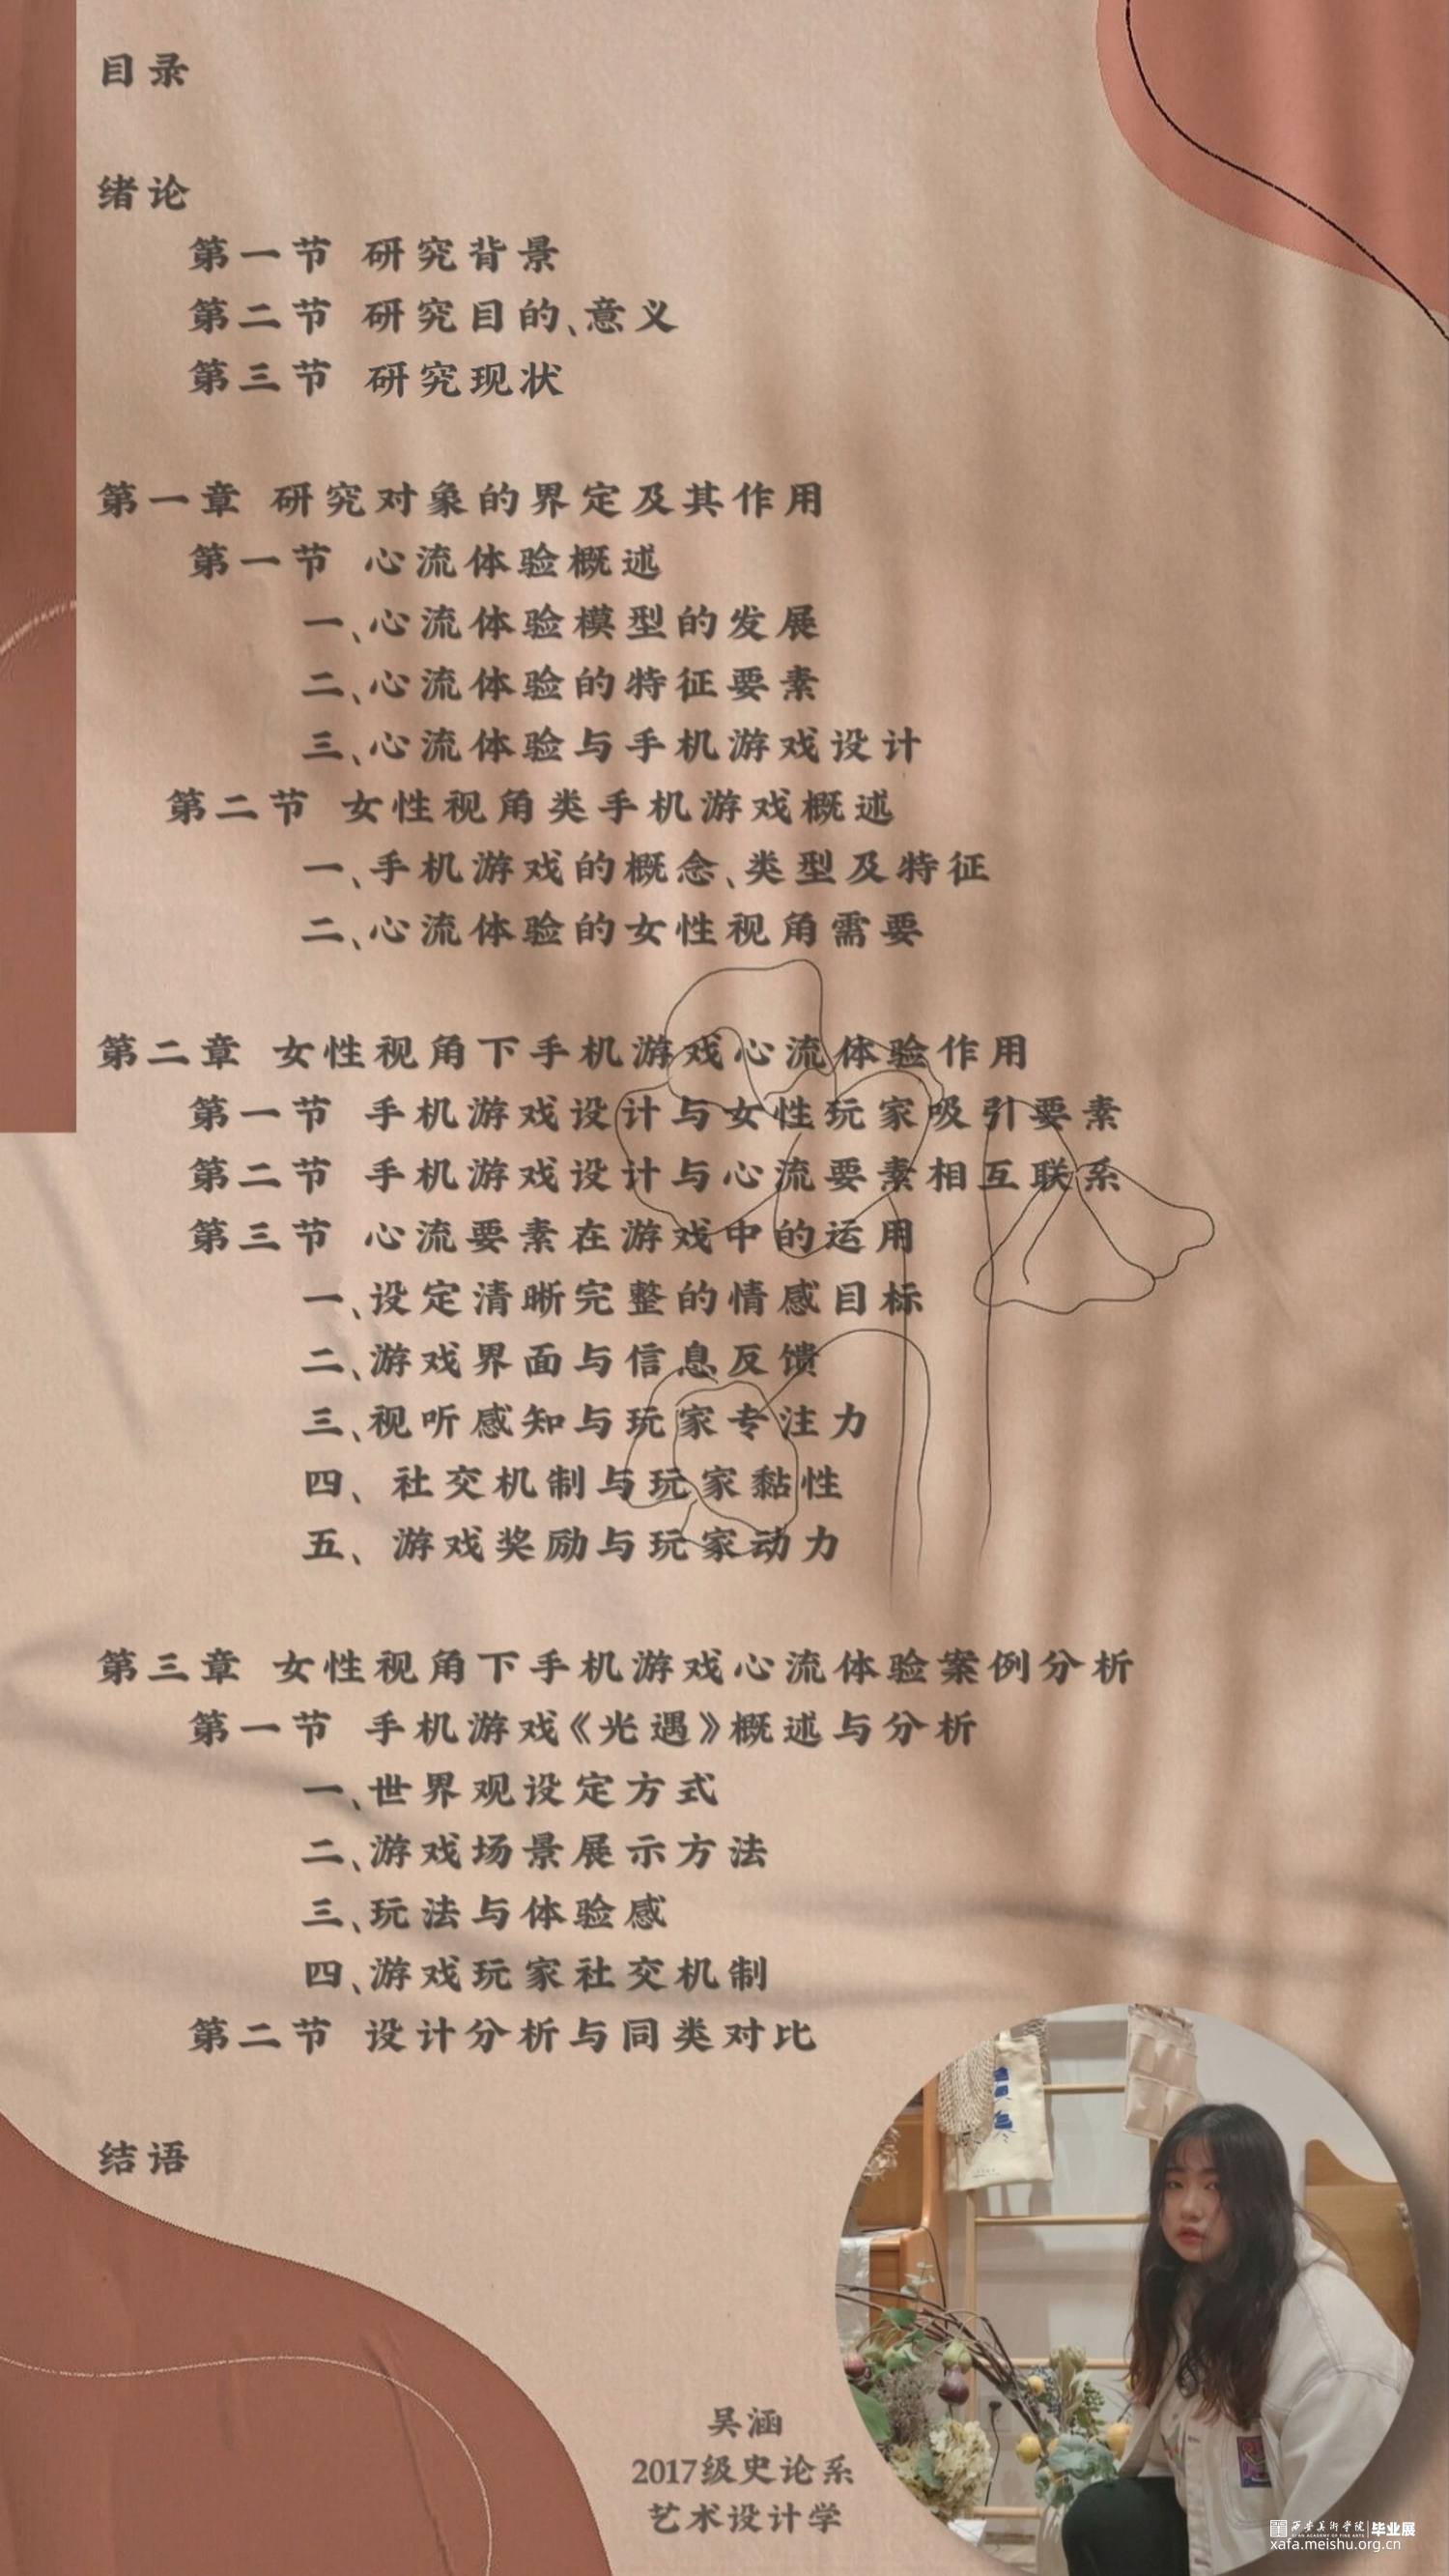 目录
绪论
第一节 研究背景
第二节 研究目的、意义
第三节 研究现状
第一章 研究对象的界定及其作用
第一节 心流体验概述
一、心流体验模型的发展
二、心流体验的特征要素
三、心流体验与手机游戏设计
第二节 女性视角类手机游戏概述
一、手机游戏的概念、类型及特征
二、心流体验的女性视角需要
第二章 女性视角下手机游戏心流体验作用
第一节 手机游戏设计与女性玩家吸引要素
第二节 手机游戏设计与心流要素相互联系
第三节 心流要素在游戏中的运用
一、设定清晰完整的情感目标
二、游戏界面与信息反馈
三、视听感知与玩家专注力
四、社交机制与玩家黏性
五、游戏奖励与玩家动力
第三章 女性视角下手机游戏心流体验案例分析
第一节 手机游戏《光遇》概述与分析
一、世界观设定方式
二、游戏场景展示方法
三、玩法与体验感
四、游戏玩家社交机制
第二节 设计分析与同类对比
结语
吴涵
2017级史论系
艺术设计学
西安美术学院 毕业展
XI'AN ACADEMY OF FINE ARTS
xafa.meishu.org.cn